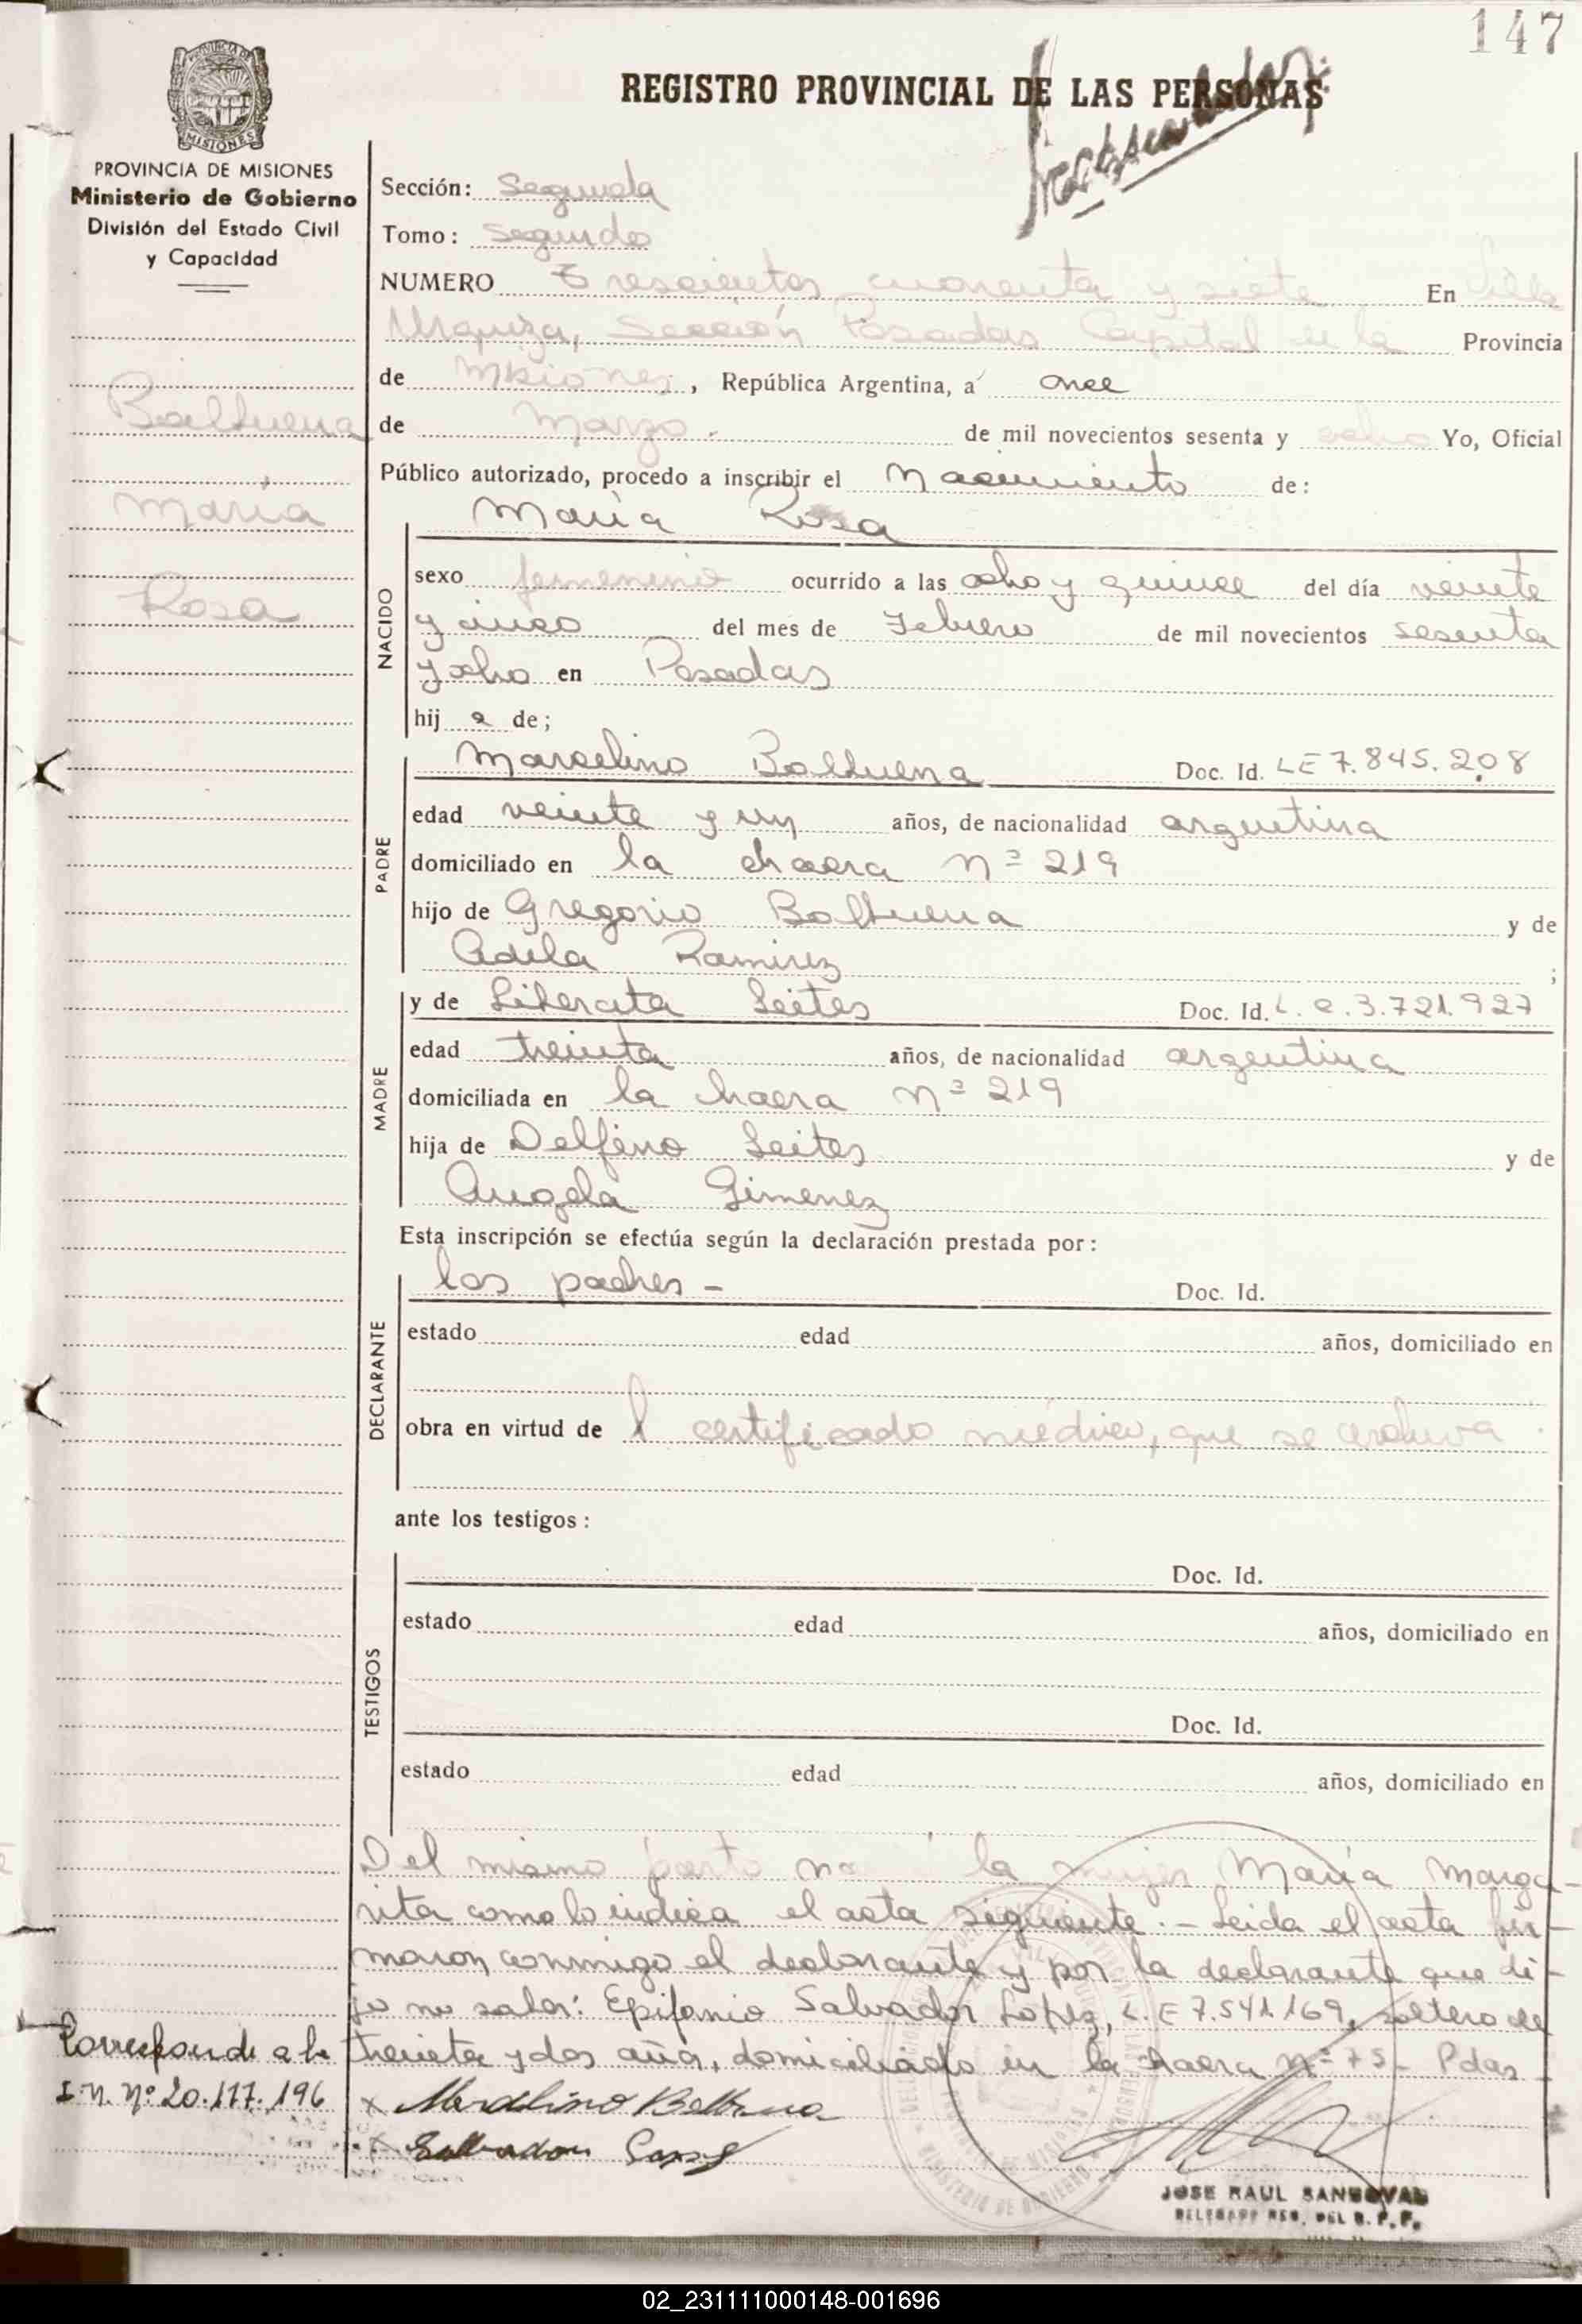 147
REGISTRO PROVINCIAL DE LAS PERSONAS
MISIONES
PROVINCIA DE MISIONES
Ministerio de Gobierno
División del Estado Civil
y Capacidad
Baltuena
María
Rosa
Sección: Segunda
Tomo: Segundo
NUMERO Trescientos cuarenta y siete En Villa
Urquiza, Sección Posadas Capital de la Provincia
de Misiones, República Argentina, a once
de Marzo de mil novecientos sesenta y ocho Yo, Oficial
Público autorizado, procedo a inscribir el Nacimiento de:
María Rosa
NACIDO
sexo femenino ocurrido a las ocho y quince del día veinte
y cinco del mes de Febrero de mil novecientos sesenta
y ocho en Posadas
hij a de;
Marcelino Baltuena Doc. Id. LE 7.845.208
PADRE
edad veinte y un años, de nacionalidad argentina
domiciliado en la chacra nº 219
hijo de Gregorio Baltuena y de
Adela Ramirez ;
y de Liberata Leites Doc. Id. L.C.3.721.927
MADRE
edad treinta años, de nacionalidad argentina
domiciliada en la chacra nº 219
hija de Delfino Leites y de
Angela Gimenez
Esta inscripción se efectúa según la declaración prestada por:
los padres - Doc. Id.
DECLARANTE
estado edad años, domiciliado en
obra en virtud de l certificado médico, que se archiva.
ante los testigos:
Doc. Id.
TESTIGOS
estado edad años, domiciliado en
Doc. Id.
estado edad años, domiciliado en
Del mismo parto la mujer María Marga-
rita como lo indica el acta siguiente.- Leida el acta fir-
maron conmigo el declarante y por la declarante que di-
jo no saber: Epifanio Salvador Lopez, L.E 7.541.169, soltero de
treinta y dos años, domiciliado en la chacra nº 75- Pdas -
Corresponde a la
I.N. Nº 20.117.196
x Marcelino Baltuena
x Salvador Lopez
JOSE RAUL SANDOVAL
02_231111000148-001696